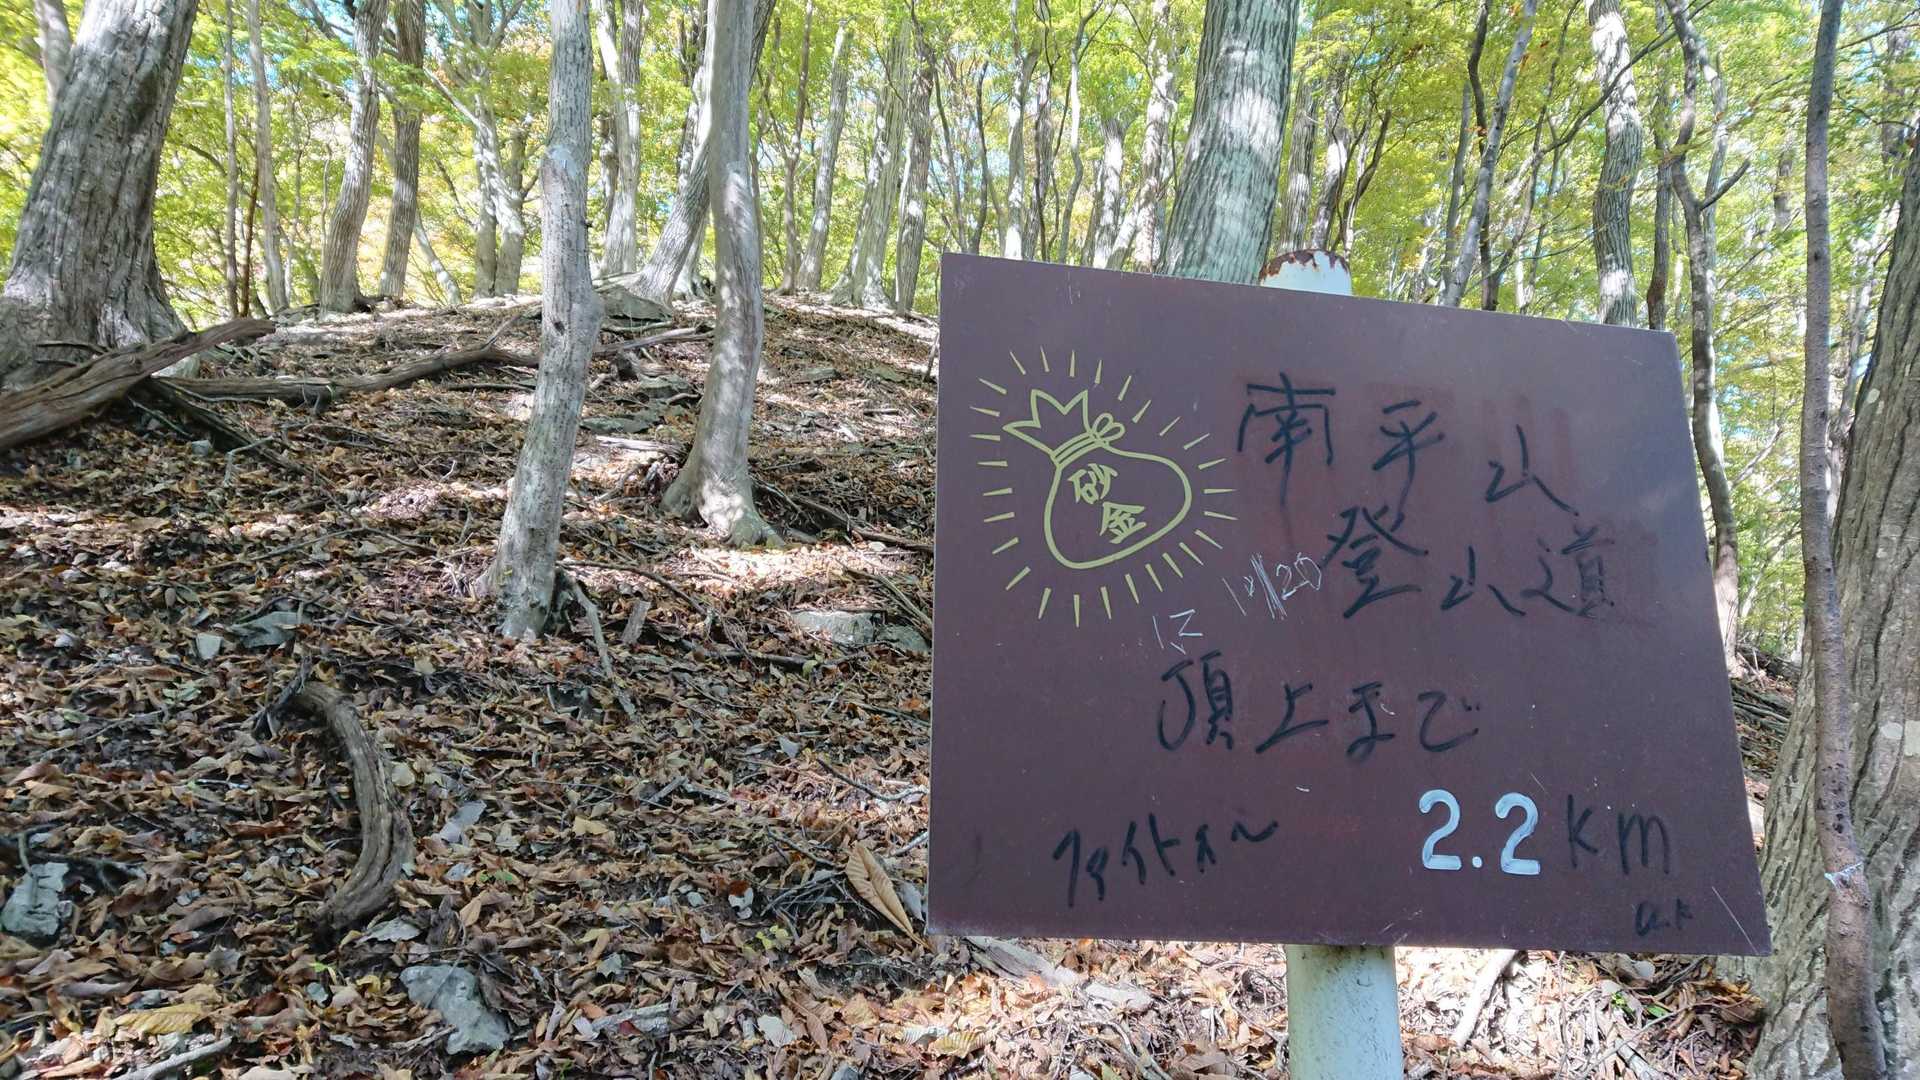 砂金
南平山
登山道
頂上まで
ファイトォ〜
2.2 Km